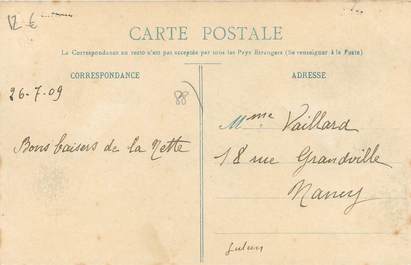 12 €
CARTE POSTALE
La Correspondance au recto n'est pas acceptée par tous les Pays Étrangers (Se renseigner à la Poste)
CORRESPONDANCE
ADRESSE
26-7-09
Bons baisers de la Nette
Mme Vaillard
18 rue Grandville
Nancy